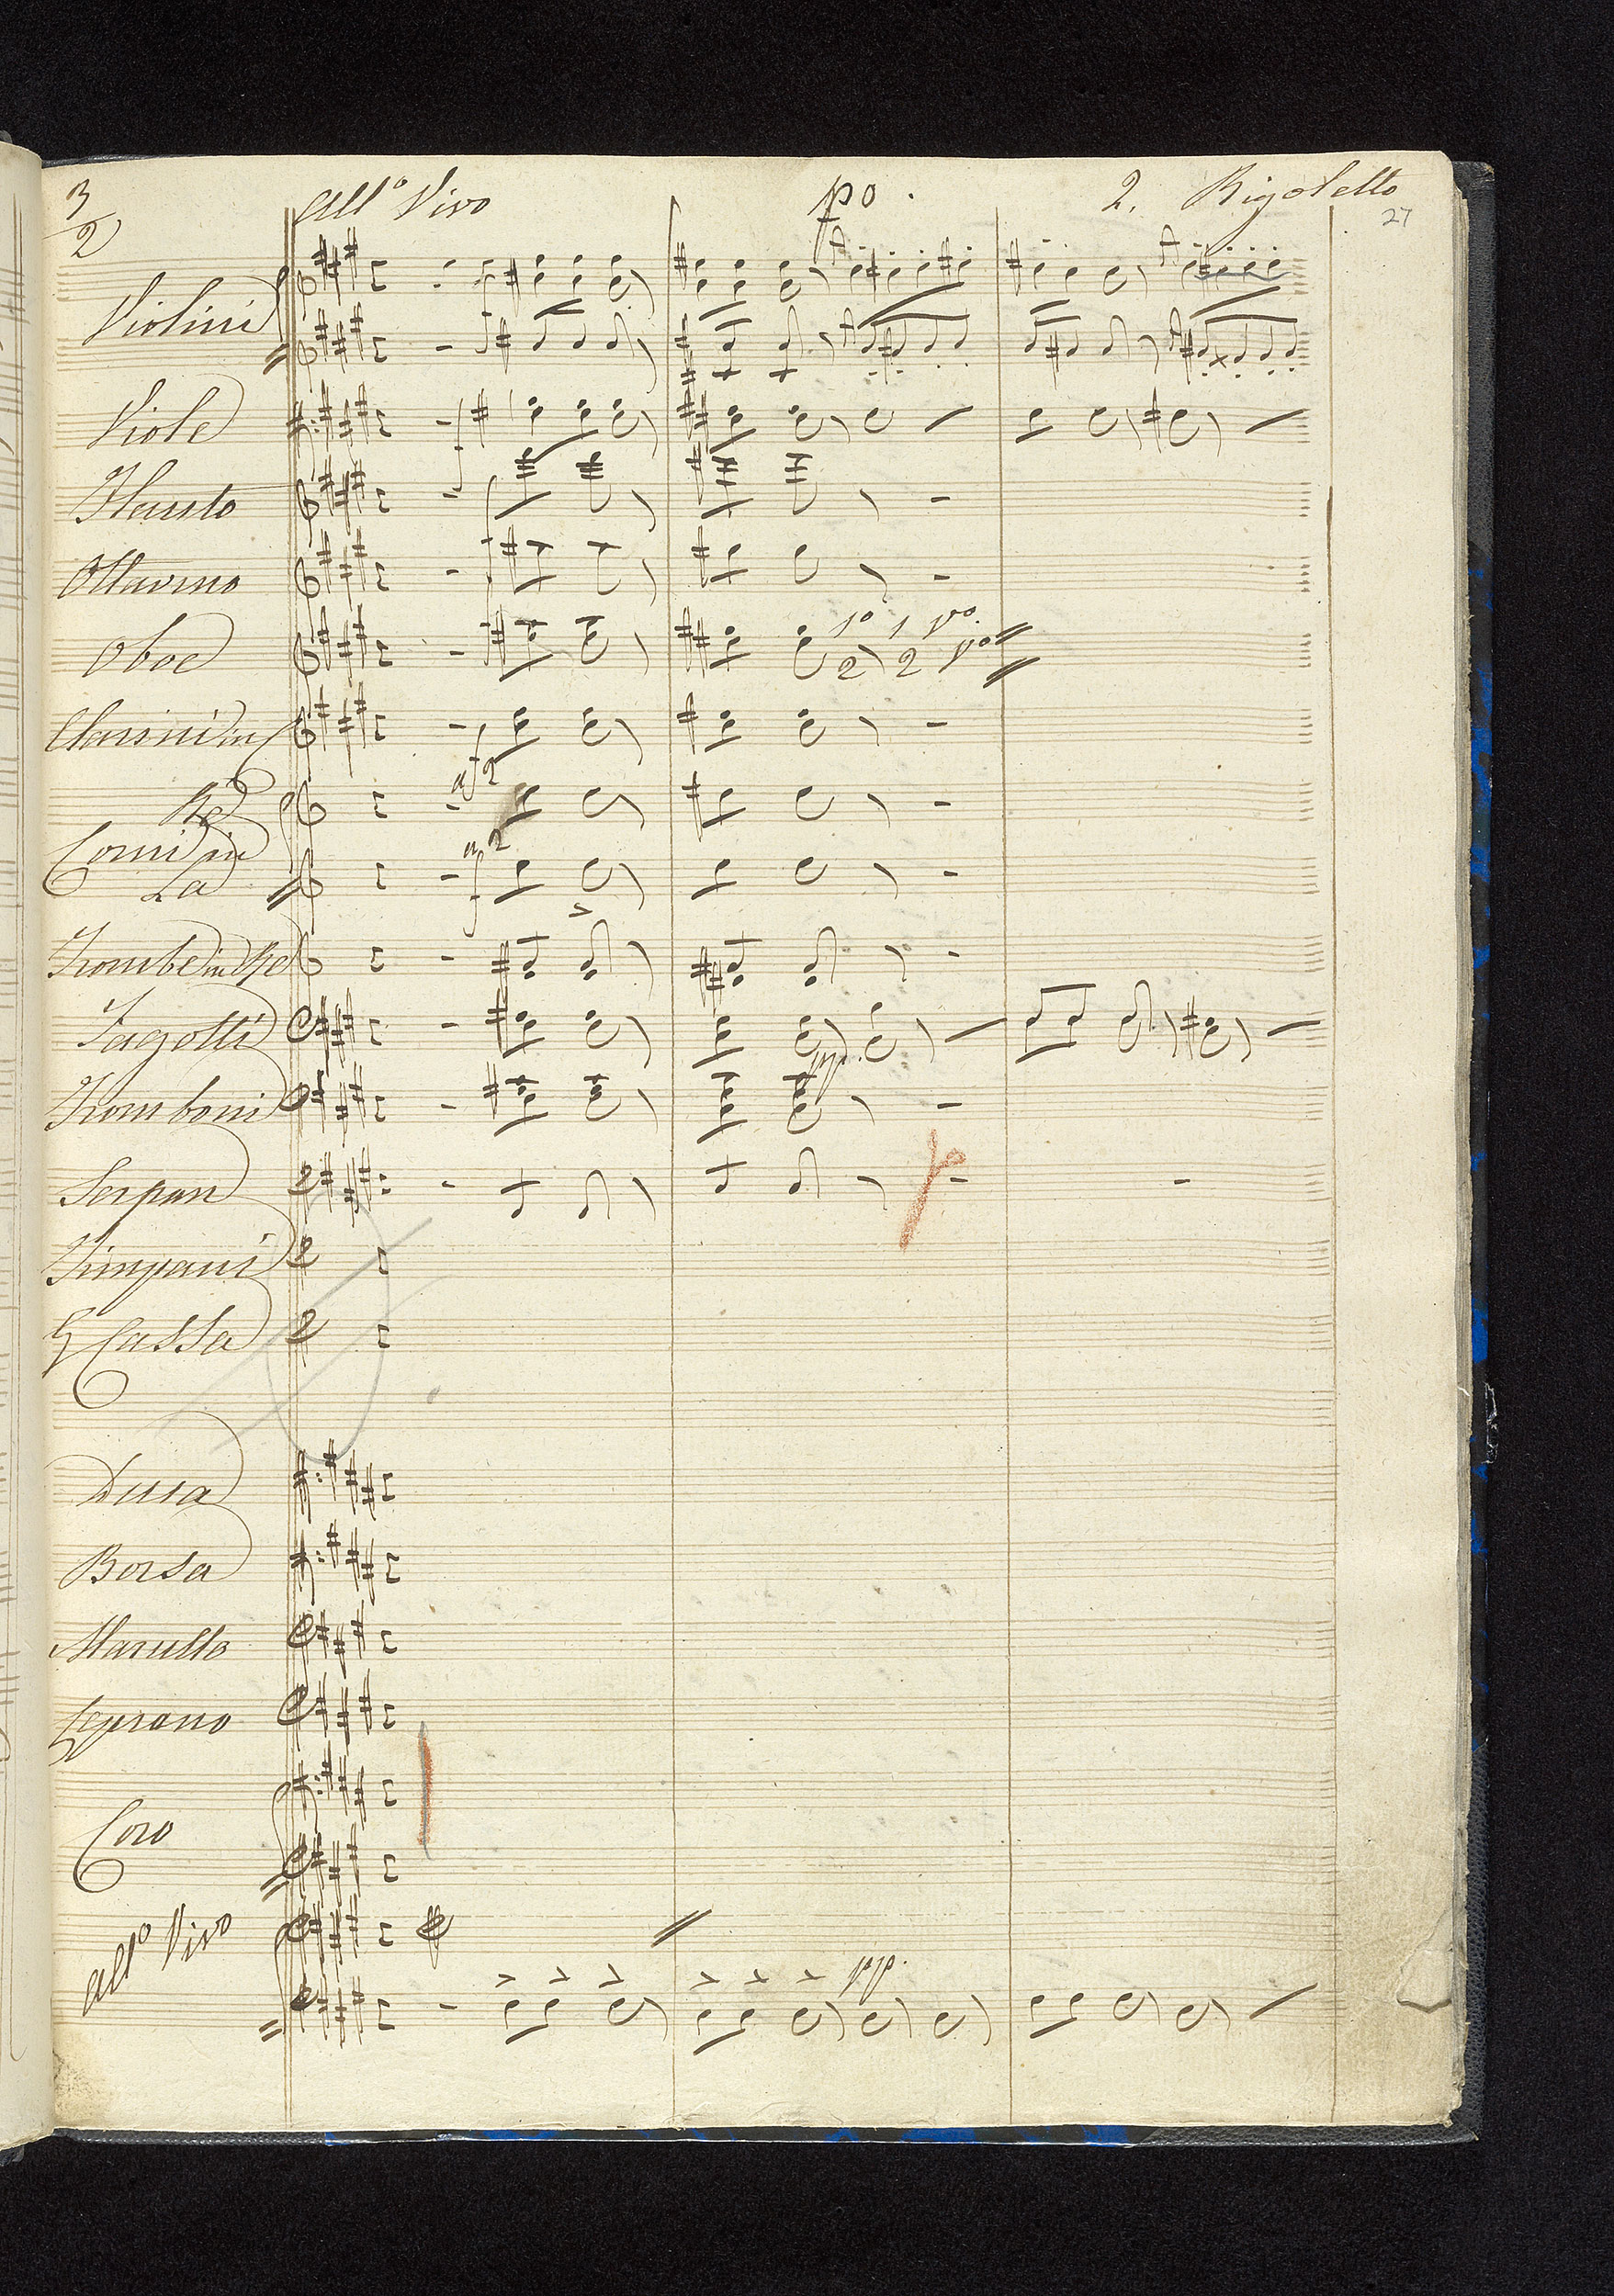 3
2
all.º Vivo
po.
2. Rigoletto
27
Violini
Viole
Flauto
Ottavino
Oboe
1º 1 vo.
2 2 vo
Clarini in
a 2
Re
Corni in
a 2
La
Trombe in Re
Fagotti
pp.
Tromboni
Serpan
p
Timpani
G Cassa
Duca
Borsa
Marullo
Ceprano
Coro
all.º Vivo
pp.